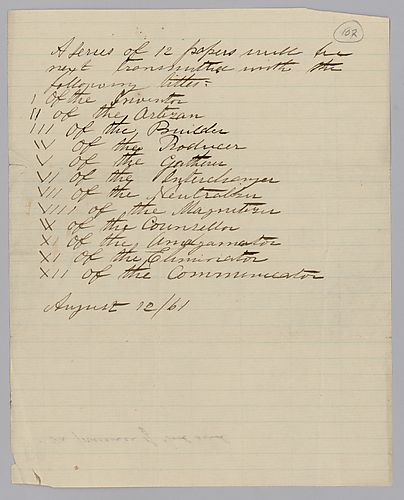 102
A series of 12 papers will be
next transmitted with the
following titles:
I Of the Inventor
II of the Artizan
III Of the Builder
IV Of the Producer
V Of the Gatherer
VI Of the Interchanger
VII Of the Neutralizer
VIII of the Magnetizer
X Of the Counsellor
XI Of the Amalgamator
XI Of the Eliminator
XII Of the Communicator
August 12/61